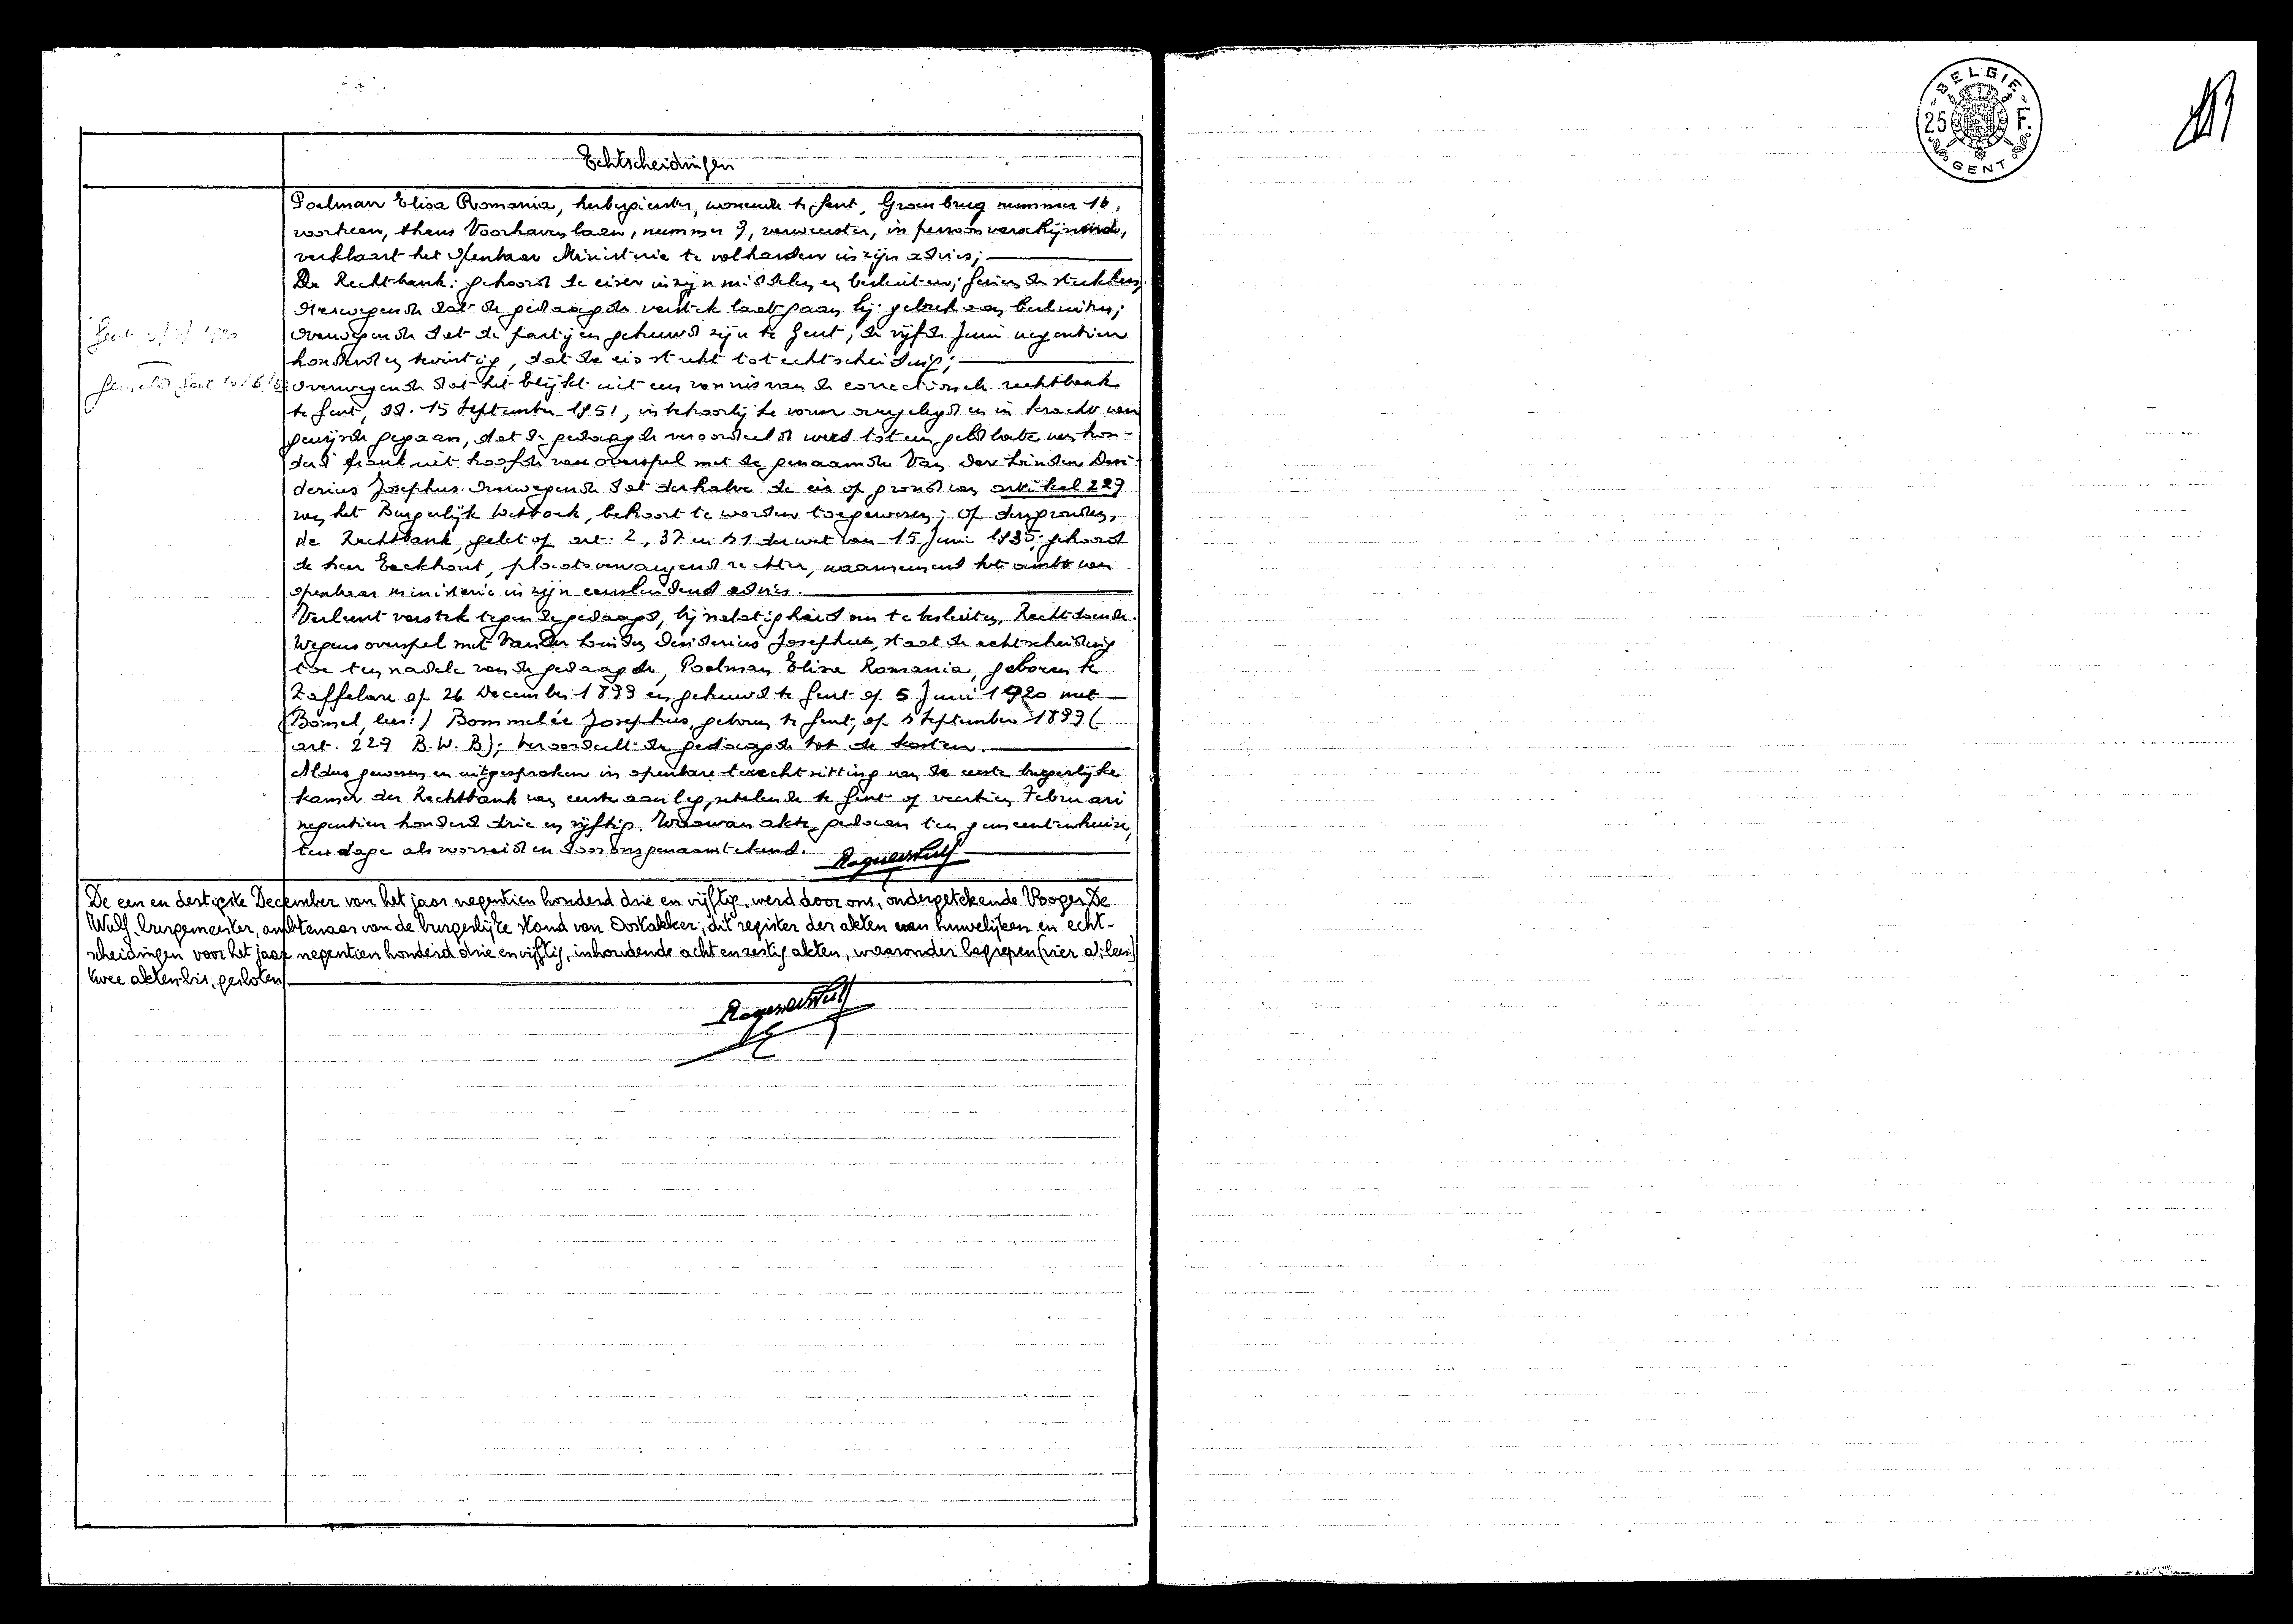 Echtscheidingen
Poelman Elisa Romania, herbergierster, wonende te Gent, Groenbrug nummer 16,
voorheen, thans Voorhavenlaan, nummer 9, verweerster, in persoon verschijnende,
verklaart het Openbaar Ministerie te volharden in zijn advies;
De Rechtbank: gehoord de eiser in zijn middelen en besluiten; gezien de stukken;
Overwegende dat de gedaagde verstek laat gaan bij gebrek aan besluiten;
Overwegende dat de partijen gehuwd zijn te Gent, de vijfde Juni negentien
honderd en twintig, dat de eis strekt tot echtscheiding;
Overwegende dat het blijkt uit een vonnis van de correctionele rechtbank
te Gent, dd. 15 September 1951, in behoorlijke vorm overgelegd en in kracht van
gewijsde gegaan, dat de gedaagde veroordeeld werd tot een geldboete van hon-
derd frank uit hoofde van overspel met de genaamde Van der Linden Desi-
derius Josephus. Overwegende dat derhalve de eis op grond van artikel 229
van het Burgerlijk Wetboek, behoort te worden toegewezen; op deze gronden,
de Rechtbank, gelet op art. 2, 37 en 41 der wet van 15 Juni 1935, gehoord
de heer Eeckhout, plaatsvervangend rechter, waarnemend het ambt van
openbaar ministerie in zijn eensluidend advies.
Verleent verstek tegen de gedaagde, bij nalatigheid om te besluiten, Rechtdoende.
Wegens overspel met Van der Linden Desiderius Josephus, staat de echtscheiding
toe ten nadele van de gedaagde, Poelman Elisa Romania, geboren te
Zaffelare op 26 December 1899 en gehuwd te Gent op 5 Juni 1920 met
(Bomel, lees:) Bommelée Josephus, geboren te Gent, op 4 September 1899 (
art. 229 B.W.B); Veroordeelt de gedaagde tot de kosten.
Aldus gewezen en uitgesproken in openbare terechtzitting van de eerste burgerlijke
kamer der Rechtbank van eerste aanleg, zetelende te Gent op veertien Februari
negentien honderd drie en vijftig. Waarvan akte, gedaan ten gemeentenhuize,
ten dage als vorenstaat en door ons genaamtekend.
De een en dertigste December van het jaar negentien honderd drie en vijftig, werd door ons, ondergetekende Roger De
Wulf, burgemeester, ambtenaar van de burgerlijke stand van Oostakker, dit register der akten van huwelijken en echt-
scheidingen voor het jaar negentien honderd drie en vijftig, inhoudende acht en zestig akten, waaronder begrepen (vier a; lees:)
twee akten bis, gesloten
BELGIE
25 F.
GENT